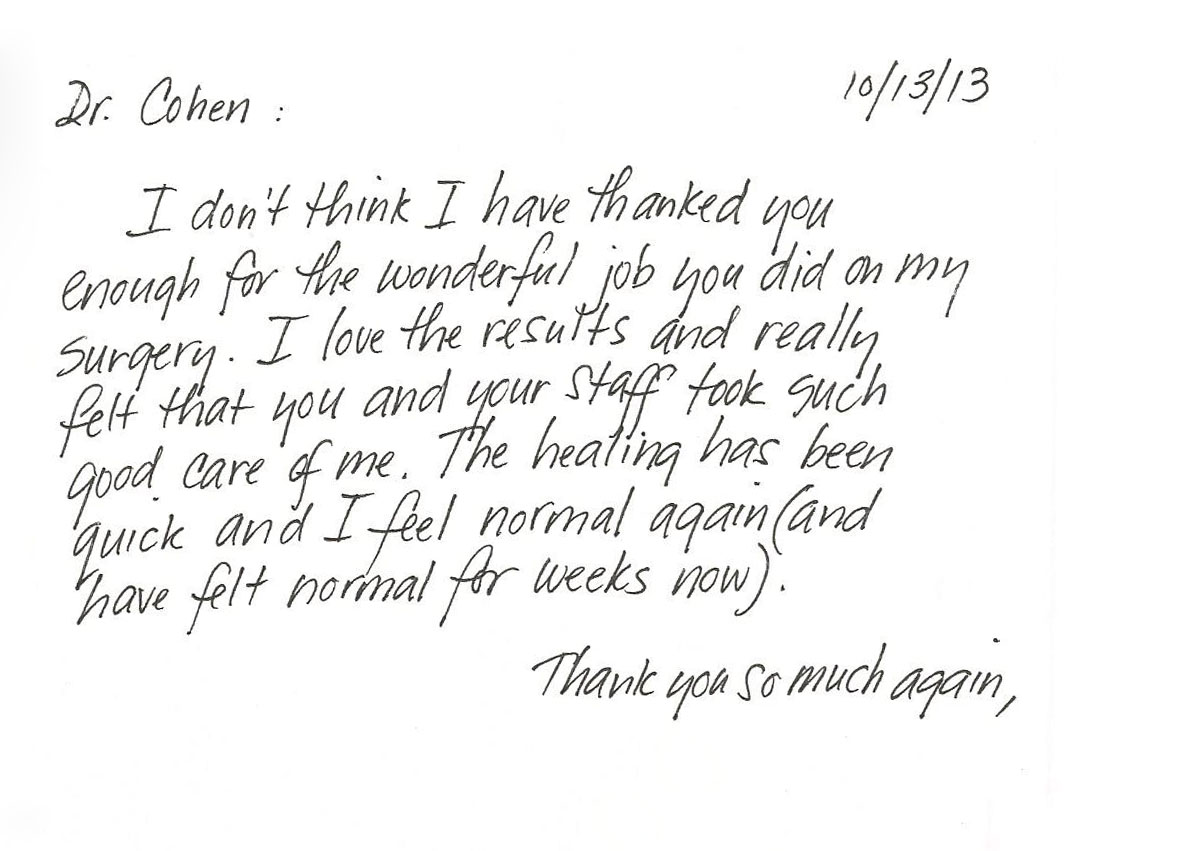 Dr. Cohen : 10/13/13
I don't think I have thanked you
enough for the wonderful job you did on my
surgery. I love the results and really
felt that you and your staff took such
good care of me. The healing has been
quick and I feel normal again (and
have felt normal for weeks now).
Thank you so much again,